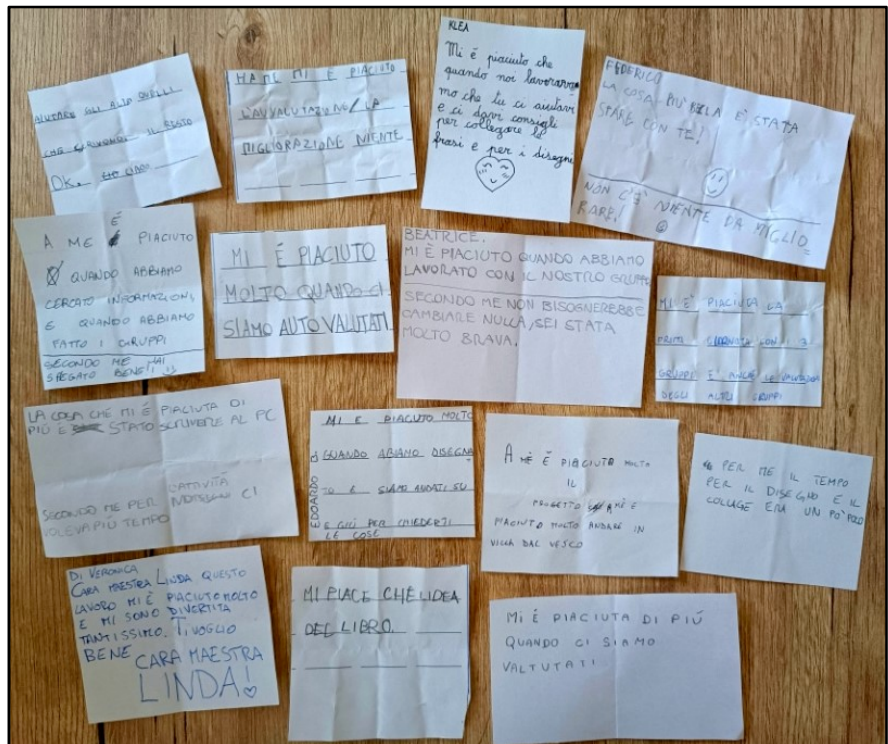 AIUTARE GLI ALTRI QUELLI
CHE SCRIVONO. IL RESTO
OK.
HA ME MI È PIACIUTO
L'AUVALUTAZIONE/ LA
MIGLIORAZIONE NIENTE
KLEA
Mi é piaciuto che
quando noi lavorava
mo che tu ci aiutavi
e ci davi consigli
per collegare le
frasi e per i disegni
FEDERICO
LA COSA PIU' BELLA E' STATA
STARE CON TE!
NON C'È NIENTE DA MIGLIO
RARE!
A ME É PIACIUTO
QUANDO ABBIAMO
CERCATO INFORMAZIONI,
E QUANDO ABBIAMO
FATTO I GRUPPI
SECONDO ME HAI
SPEGATO BENE!!
MI É PIACIUTO
MOLTO QUANDO CI
SIAMO AUTOVALUTATI
BEATRICE.
MI È PIACIUTO QUANDO ABBIAMO
LAVORATO CON IL NOSTRO GRUPPO
SECONDO ME NON BISOGNEREBBE
CAMBIARE NULLA, SEI STATA
MOLTO BRAVA.
MI E' PIACIUTA LA
PRIMA GIORNATA CON I 3
GRUPPI E' ANCHE LA VALUTAZION
DEGLI ALTRI GRUPPI
LA COSA CHE MI É PIACIUTA DI
PIÙ É STATO SCRIVERE AL PC
SECONDO ME PER L'ATTIVITÀ
CI
VOLEVA PIÙ TEMPO
EDOARDO D.
MI E PIACIUTO MOLTO
QUANDO ABIAMO DISEGNA
TO E SIAMO ANDATI SU
E GIÙ PER CHIEDERTI
LE COSE
A ME É PIACIUTO MOLTO
IL
PROGETTO A MÈ E
PIACIUTO MOLTO ANDARE IN
VILLA DAL VESCO
PER ME IL TEMPO
PER IL DISEGNO E IL
COLLAGE ERA UN PO' POCO
DI VERONICA
CARA MAESTRA LINDA QUESTO
LAVORO MI È PIACIUTO MOLTO
E MI SONO DIVERTITA
TANTISSIMO. TI VOGLIO
BENE CARA MAESTRA
LINDA!
MI PIACE CHE L'IDEA
DEL LIBRO.
MI É PIACIUTA DI PIÚ
QUANDO CI SIAMO
VALTUTATI